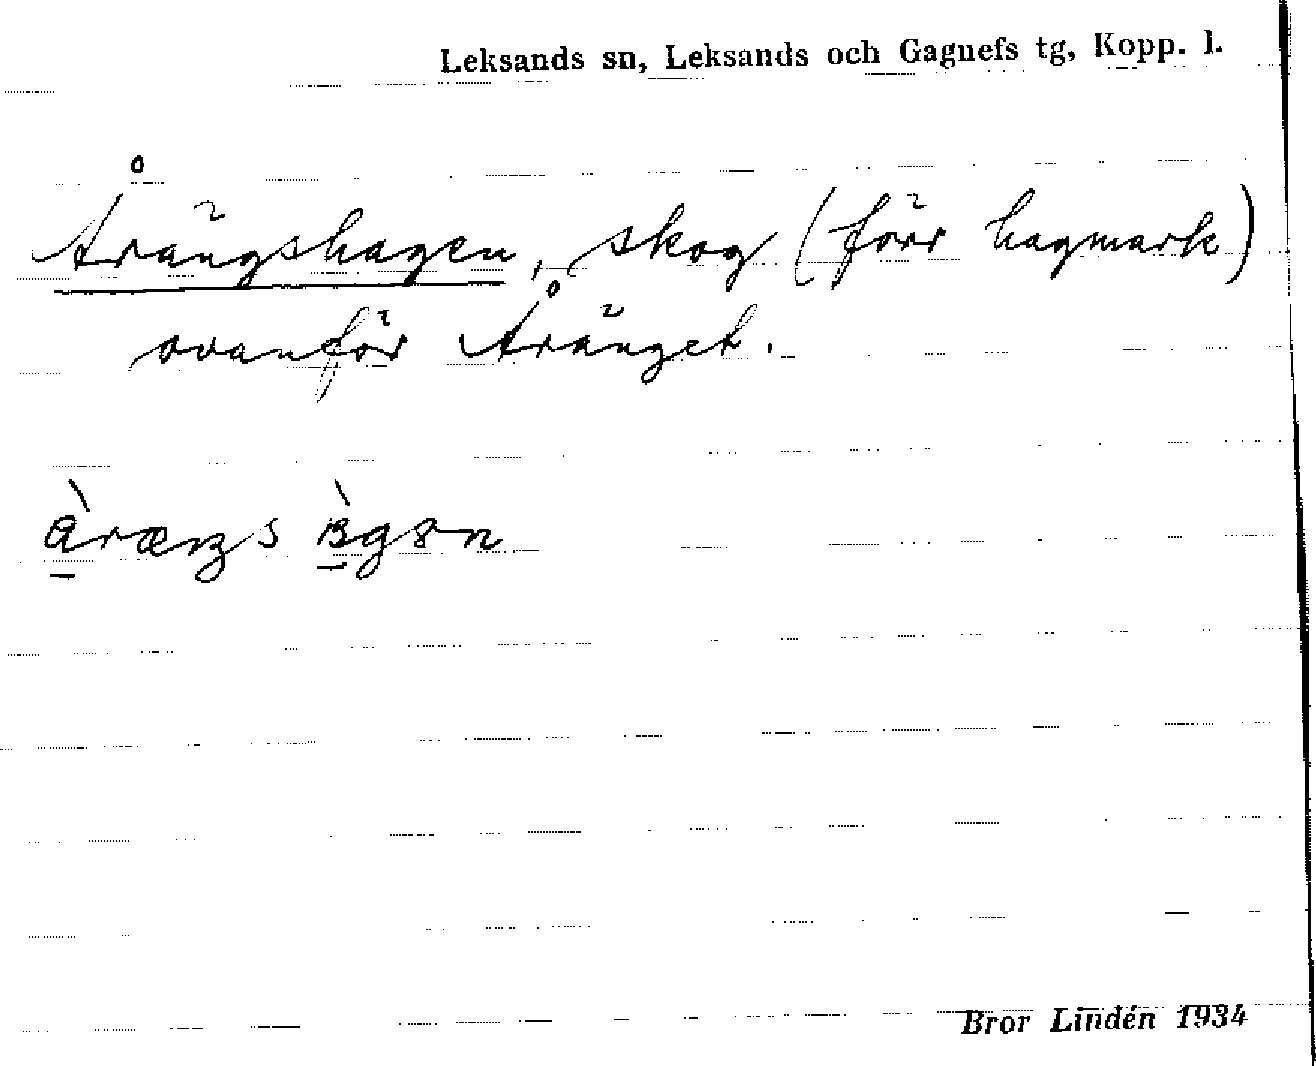 Leksands sn, Leksands och Gagnefs tg, Kopp. l.
Årängshagen, skog (förr hagmark)
ovanför Åränget.
Bror Lindén 1934